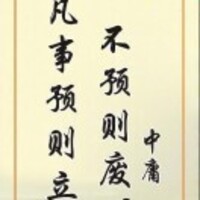 凡事预则立
不预则废
中庸